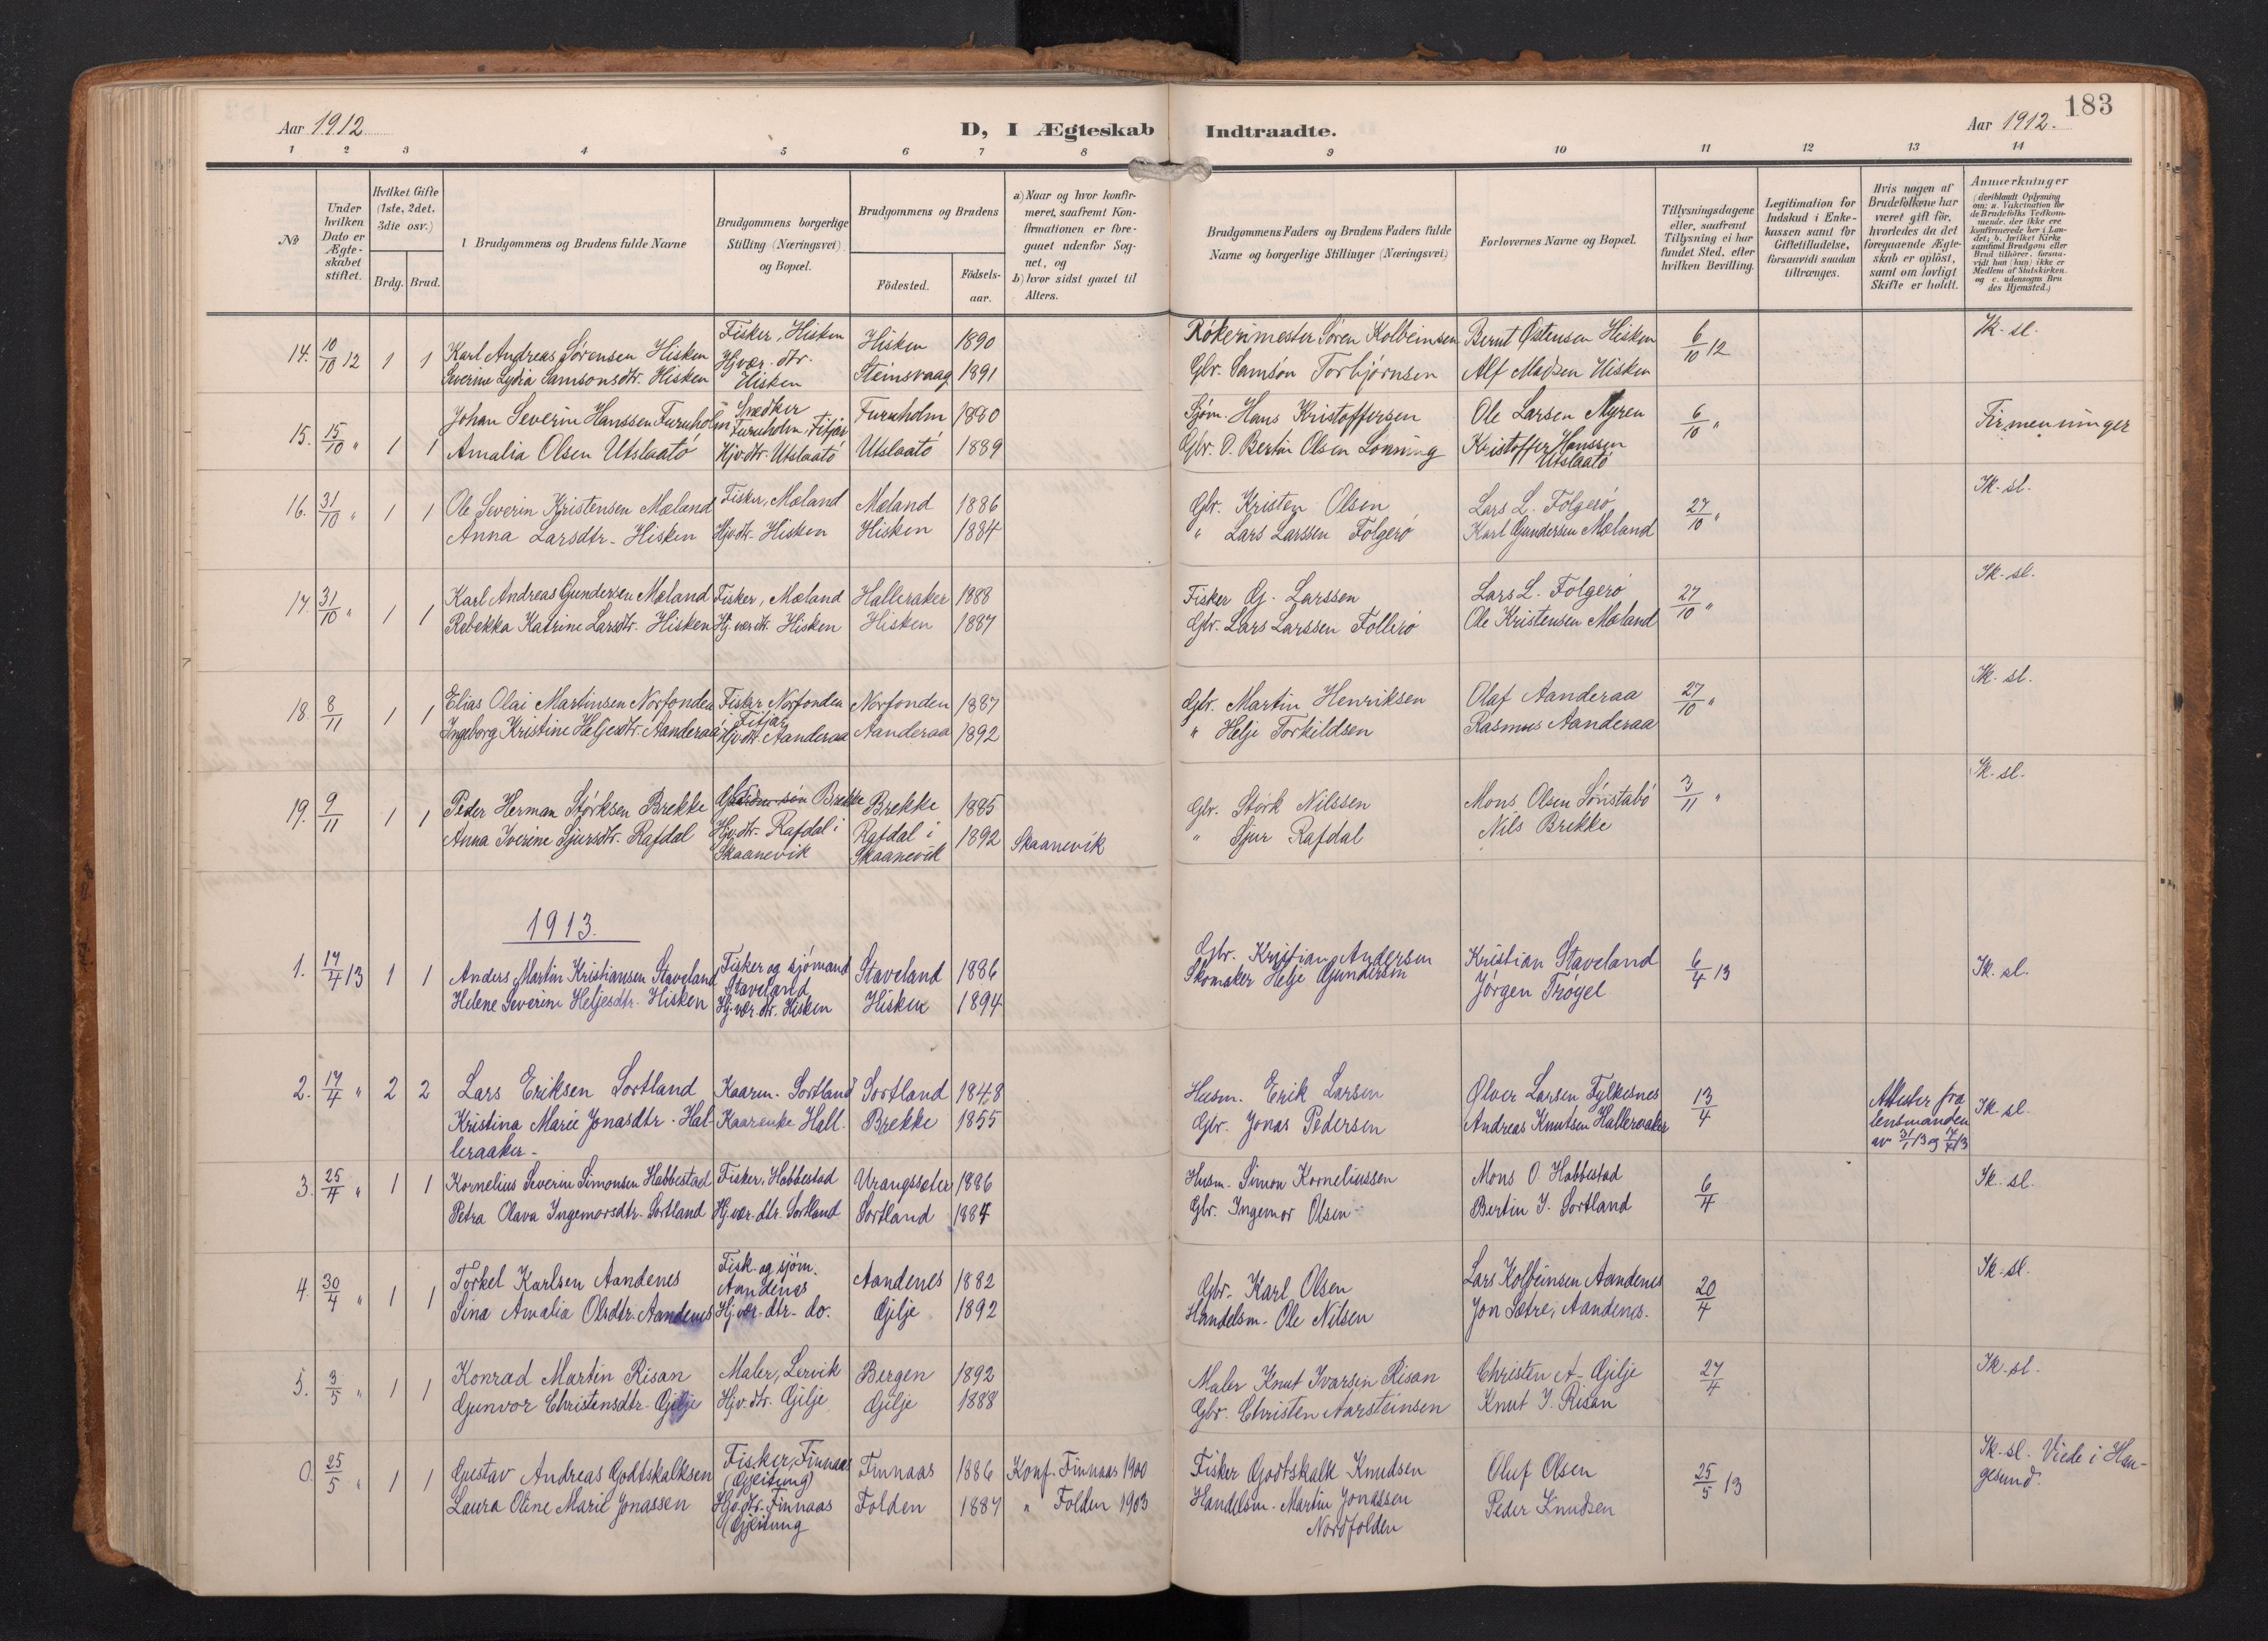 183
Aar 1912
D, I Ægteskab Indtraadte.
Aar 1912.
1 2 3 4 5 6 7 8 9 10 11 12 13 14
No
Under hvilken Dato er Ægteskabet stiftet.
Hvilket Gifte (1ste, 2det. 3die osv.)
Brdg. Brud.
Brudgommens og Brudens fulde Navne
Brudgommens borgerlige Stilling (Næringsvei) og Bopæl.
Brudgommens og Brudens
Födested.
Födsels-aar.
a) Naar og hvor konfirmeret, saafremt Konfirmationen er foregaaet udenfor Sognet, og
b) hvor sidst gaaet til Alters.
Brudgommens Faders og Brudens Faders fulde Navne og borgerlige Stillinger (Næringsvei)
Forlovernes Navne og Bopæl.
Tillysningsdagene eller, saafremt Tillysning ei har fundet Sted, efter hvilken Bevilling.
Legitimation for Indskud i Enkekassen samt for Giftetilladelse, forsaavidt saadan tiltrænges.
Hvis nogen af Brudefolkene har været gift för, hvorledes da det foregaaende Ægteskab er oplöst, samt om lovligt Skifte er holdt.
Anmærkninger (deriblandt Oplysning om: a. Vakcination for de Brudefolks Vedkommende, der ikke ere konfirmerede her i Landet; b. hvilket Kirkesamfund Brudgom eller Brud tilhörer, forsaavidt han (hun) ikke er Medlem af Statskirken og c. udensogns Brudes Hjemsted.)
14. 10/10 12 1 1 Karl Andreas Sørensen Hisken Fisker, Hisken Hisken 1890 Røkerimester Søren Kolbeinsen Bernt Østensen Hisken 6/10 12 Ik. sl.
Severine Lydia Samsonsdtr. Hisken Hj.vær. dtr. Hisken Steinsvaag 1891 Gbr. Samson Torbjørnsen Alf Madsen Hisken
15. 15/10 " 1 1 Johan Severin Hanssen Furuholm Snedker Furuholm, Fitjar Furuholm 1880 Sjøm. Hans Kristoffersen Ole Larsen Myren 6/10 " Firmenninger
Amalia Olsen Utslaatø Hjv.dtr. Utslaatø Utslaatø 1889 Gbr. D. Bertin Olsen Lønning Kristoffer Hanssen Utslaatø
16. 31/10 " 1 1 Ole Severin Kristensen Mæland Fisker, Mæland Mæland 1886 Gbr. Kristen Olsen Lars L. Folgerø 27/10 " Ik. sl.
Anna Larsdtr. Hisken Hjv.dtr. Hisken Hisken 1884 " Lars Larssen Folgerø Karl Gundersen Mæland
17. 31/10 " 1 1 Karl Andreas Gundersen Mæland Fisker, Mæland Halleraker 1888 Fisker G. Larssen Lars L. Folgerø 27/10 " Ik. sl.
Rebekka Katrine Larsdtr. Hisken Hj. vær dtr. Hisken Hisken 1887 Gbr. Lars Larssen Follerø Ole Kristensen Mæland
18. 8/11 1 1 Elias Olai Martinsen Norfonden Fisker Norfonden Fitjar Norfonden 1887 Gbr. Martin Henriksen Olaf Aanderaa 27/10 " Ik. sl.
Ingeborg Kristine Heljesdtr. Aanderaa Hjv.dtr. Aanderaa Aanderaa 1892 " Helje Torkildsen Rasmus Aanderaa
19. 9/11 1 1 Peder Herman Størksen Brekke Brekke Brekke 1885 Gbr. Størk Nilssen Mons Olsen Sønstabø 3/11 " Ik. sl.
Anna Iverine Sjursdtr. Rafdal Hjv.dtr. Rafdal i Skaanevik Rafdal i Skaanevik 1892 Skaanevik " Sjur Rafdal Nils Brekke
1913.
1. 17/4 13 1 1 Anders Martin Kristiansen Staveland Fisker og sjømand Staveland Staveland 1886 Gbr. Kristian Andersen Kristian Staveland 6/4 13 Ik. sl.
Helene Severine Heljesdtr. Hisken Hj. vær. dtr. Hisken Hisken 1894 Skomaker Helje Gundersen Jørgen Trøgel
2. 17/4 " 2 2 Lars Eriksen Sortland Kaarm. Sortland Sortland 1848 Husm. Erik Larsen Ølver Larsen Fylkesnes 13/4 Attester fra lensmanden av 31/1 13 og 17/4 13 Ik. sl.
Kristina Marie Jonasdtr. Halleraaker Kaarenke Hall. Brekke 1855 Gbr. Jonas Pedersen Andreas Knutsen Halleraaker
3. 25/4 " 1 1 Kornelius Severin Simonsen Habbestad Fisker, Habbestad Vrangssæter 1886 Husm. Simon Korneliussen Mons O. Habbestad 6/4 Ik. sl.
Petra Olava Ingemorsdtr. Sortland Hj. vær. dtr. Sortland Sortland 1884 Gbr. Ingemor Olsen Bertin I. Sortland
4. 30/4 " 1 1 Torkel Karlsen Aandenes Fisk. og sjøm. Aandenes Aandenes 1882 Gbr. Karl Olsen Lars Kolbeinsen Aandenes 20/4 Ik. sl.
Sina Amalia Olsdtr. Aandenes Hj. vær. dtr. do. Gjilje 1892 Handelsm. Ole Nilsen Jon Sætre, Aandenes.
5. 3/5 " 1 1 Konrad Martin Risan Maler, Lervik Bergen 1892 Maler Knut Ivarsen Risan Christen A. Gjilje 27/4 Ik. sl.
Gunvor Christensdtr. Gjilje Hjv. dtr. Gjilje Gjilje 1888 Gbr. Christen Aarsteinsen Knut I. Risan
0. 25/5 " 1 1 Gustav Andreas Godtskalksen Fisker, Finnaas (Gjeitung) Finnaas 1886 Konf. Finnaas 1900 Fisker Godtskalk Knudsen Oluf Olsen 25/5 13 Ik. sl. Viede i Haugesund.
Laura Oline Marie Jonassen Hjv. dtr. Finnaas (Gjeitung Folden 1887 " Folden 1903 Handelsm. Martin Jonassen Nordfolden Peder Knudsen